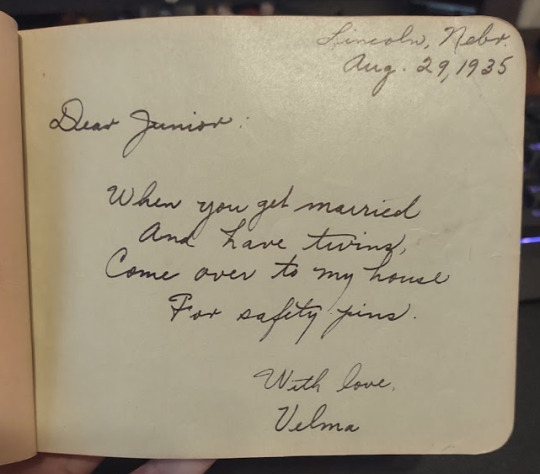 Lincoln, Nebr.
Aug. 29, 1935
Dear Junior:
When you get married
And have twins,
Come over to my house
For safety pins.
With love,
Velma